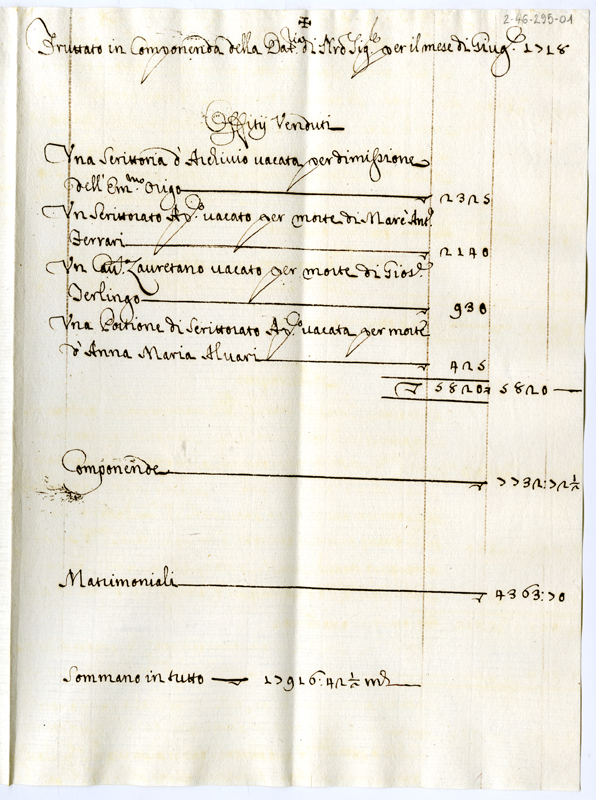 ✠
2-46-295-01
Fruttato in Componenda della Dat.ria di Nrõ Sig.re per il mese di Giug.o 1718
Offitij Venduti
Vna Scrittoria d'Archivio vacata per dimissione
dell'Em.mo Origo 2325
Vn Scrittorato Ap.co vacato per morte di Marc'Ant.o
Ferrari 2140
Vn Cau.to Lauretano vacato per morte di Gios.e
Berlingo 930
Vna Portione di Scrittorato Ap.co vacata per morte
d'Anna Maria Aluari 425
5820 5820
Componende 7732:72½
Matrimoniali 4363:70
Sommano in tutto 17916:42½ mta